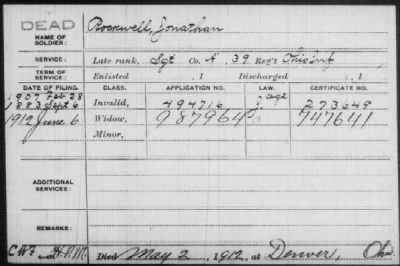 DEAD
NAME OF SOLDIER: Rockwell, Jonathan
SERVICE: Late rank, Sgt Co. A, 39 Reg't Ohio Inf
TERM OF SERVICE: Enlisted , 1 Discharged , 1
DATE OF FILING. CLASS. APPLICATION NO. LAW. CERTIFICATE NO.
1907 Feb 28
1883 Sept 6 Invalid, 494716 273649
1912 June 6 Widow, 987964 747641
Minor,
ADDITIONAL SERVICES:
REMARKS:
Died May 2, 1912, at Denver, Oh